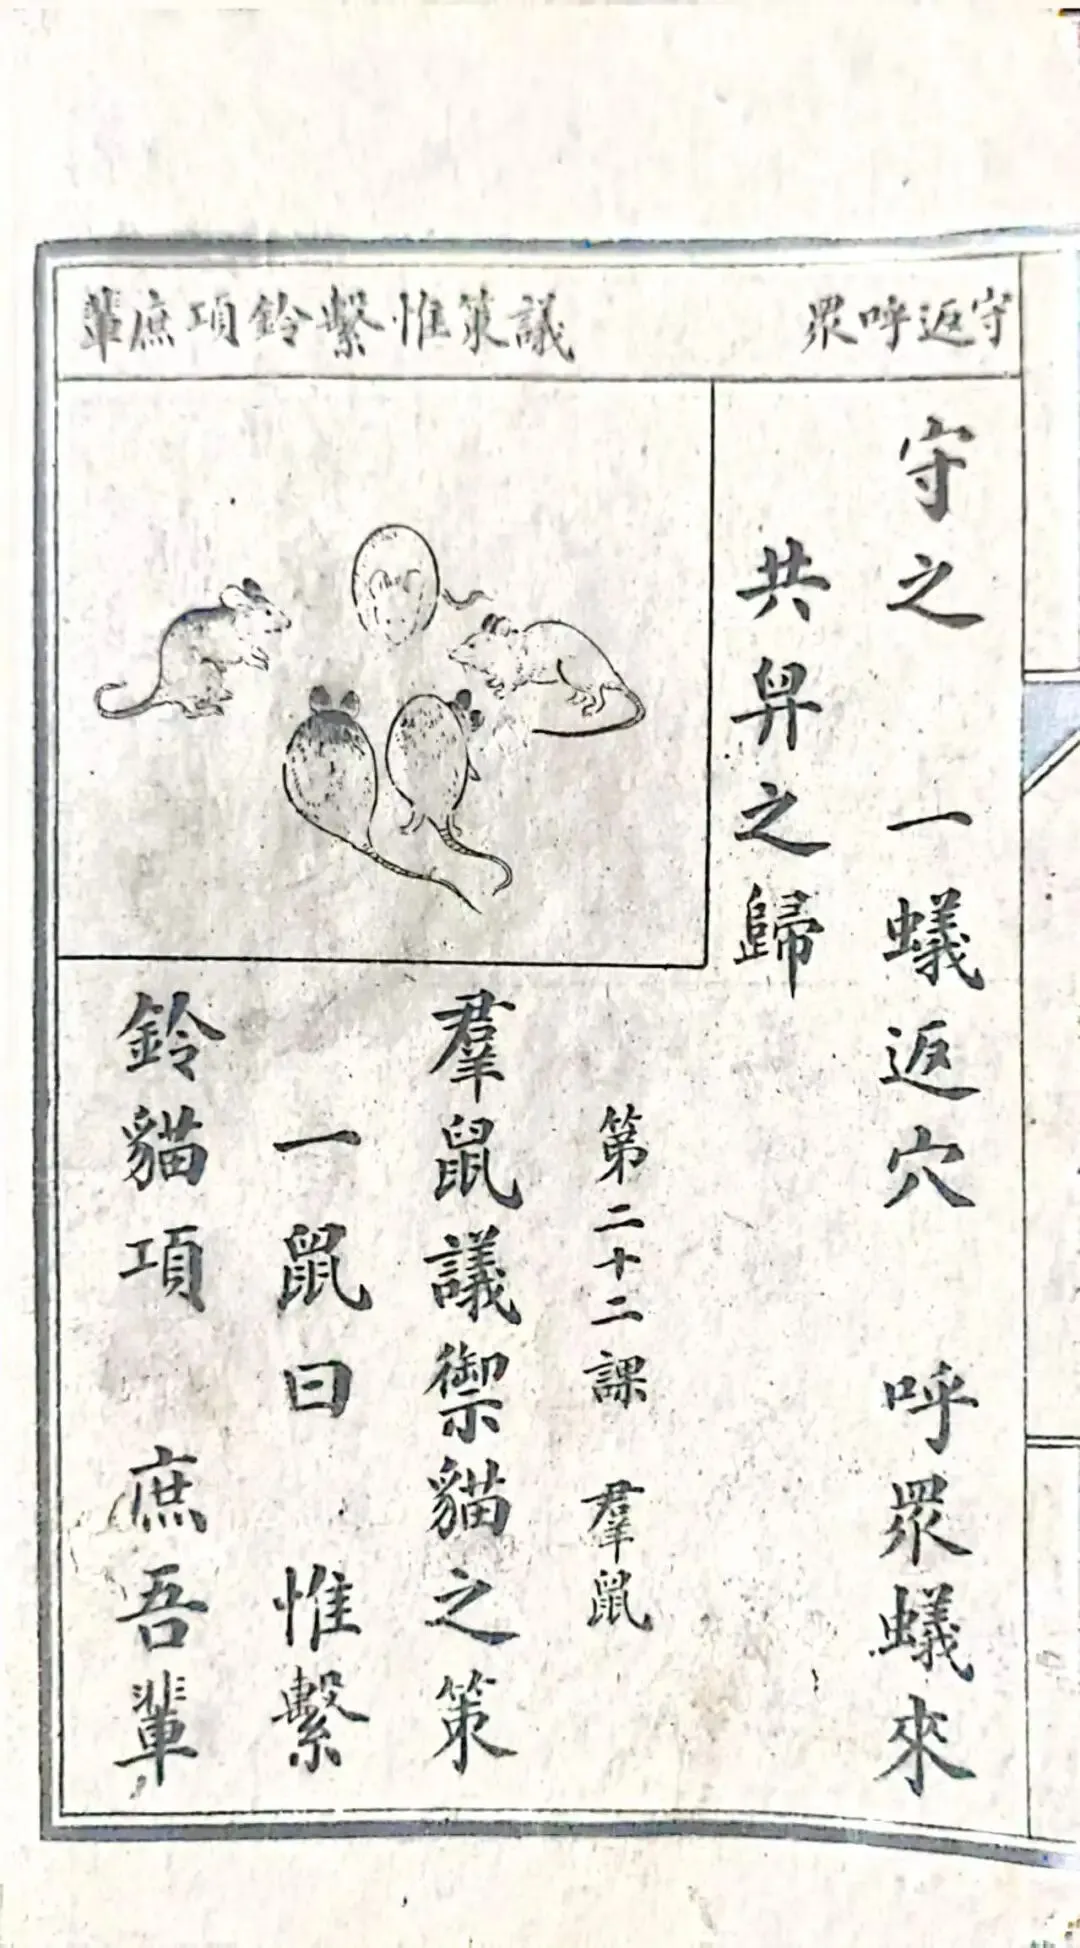 守返呼眾
議策惟繫鈴項庶輩
守之　一蟻返穴　呼眾蟻來
共舁之歸
第二十二課　羣鼠
羣鼠議禦貓之策
一鼠曰　惟繫
鈴貓項　庶吾輩